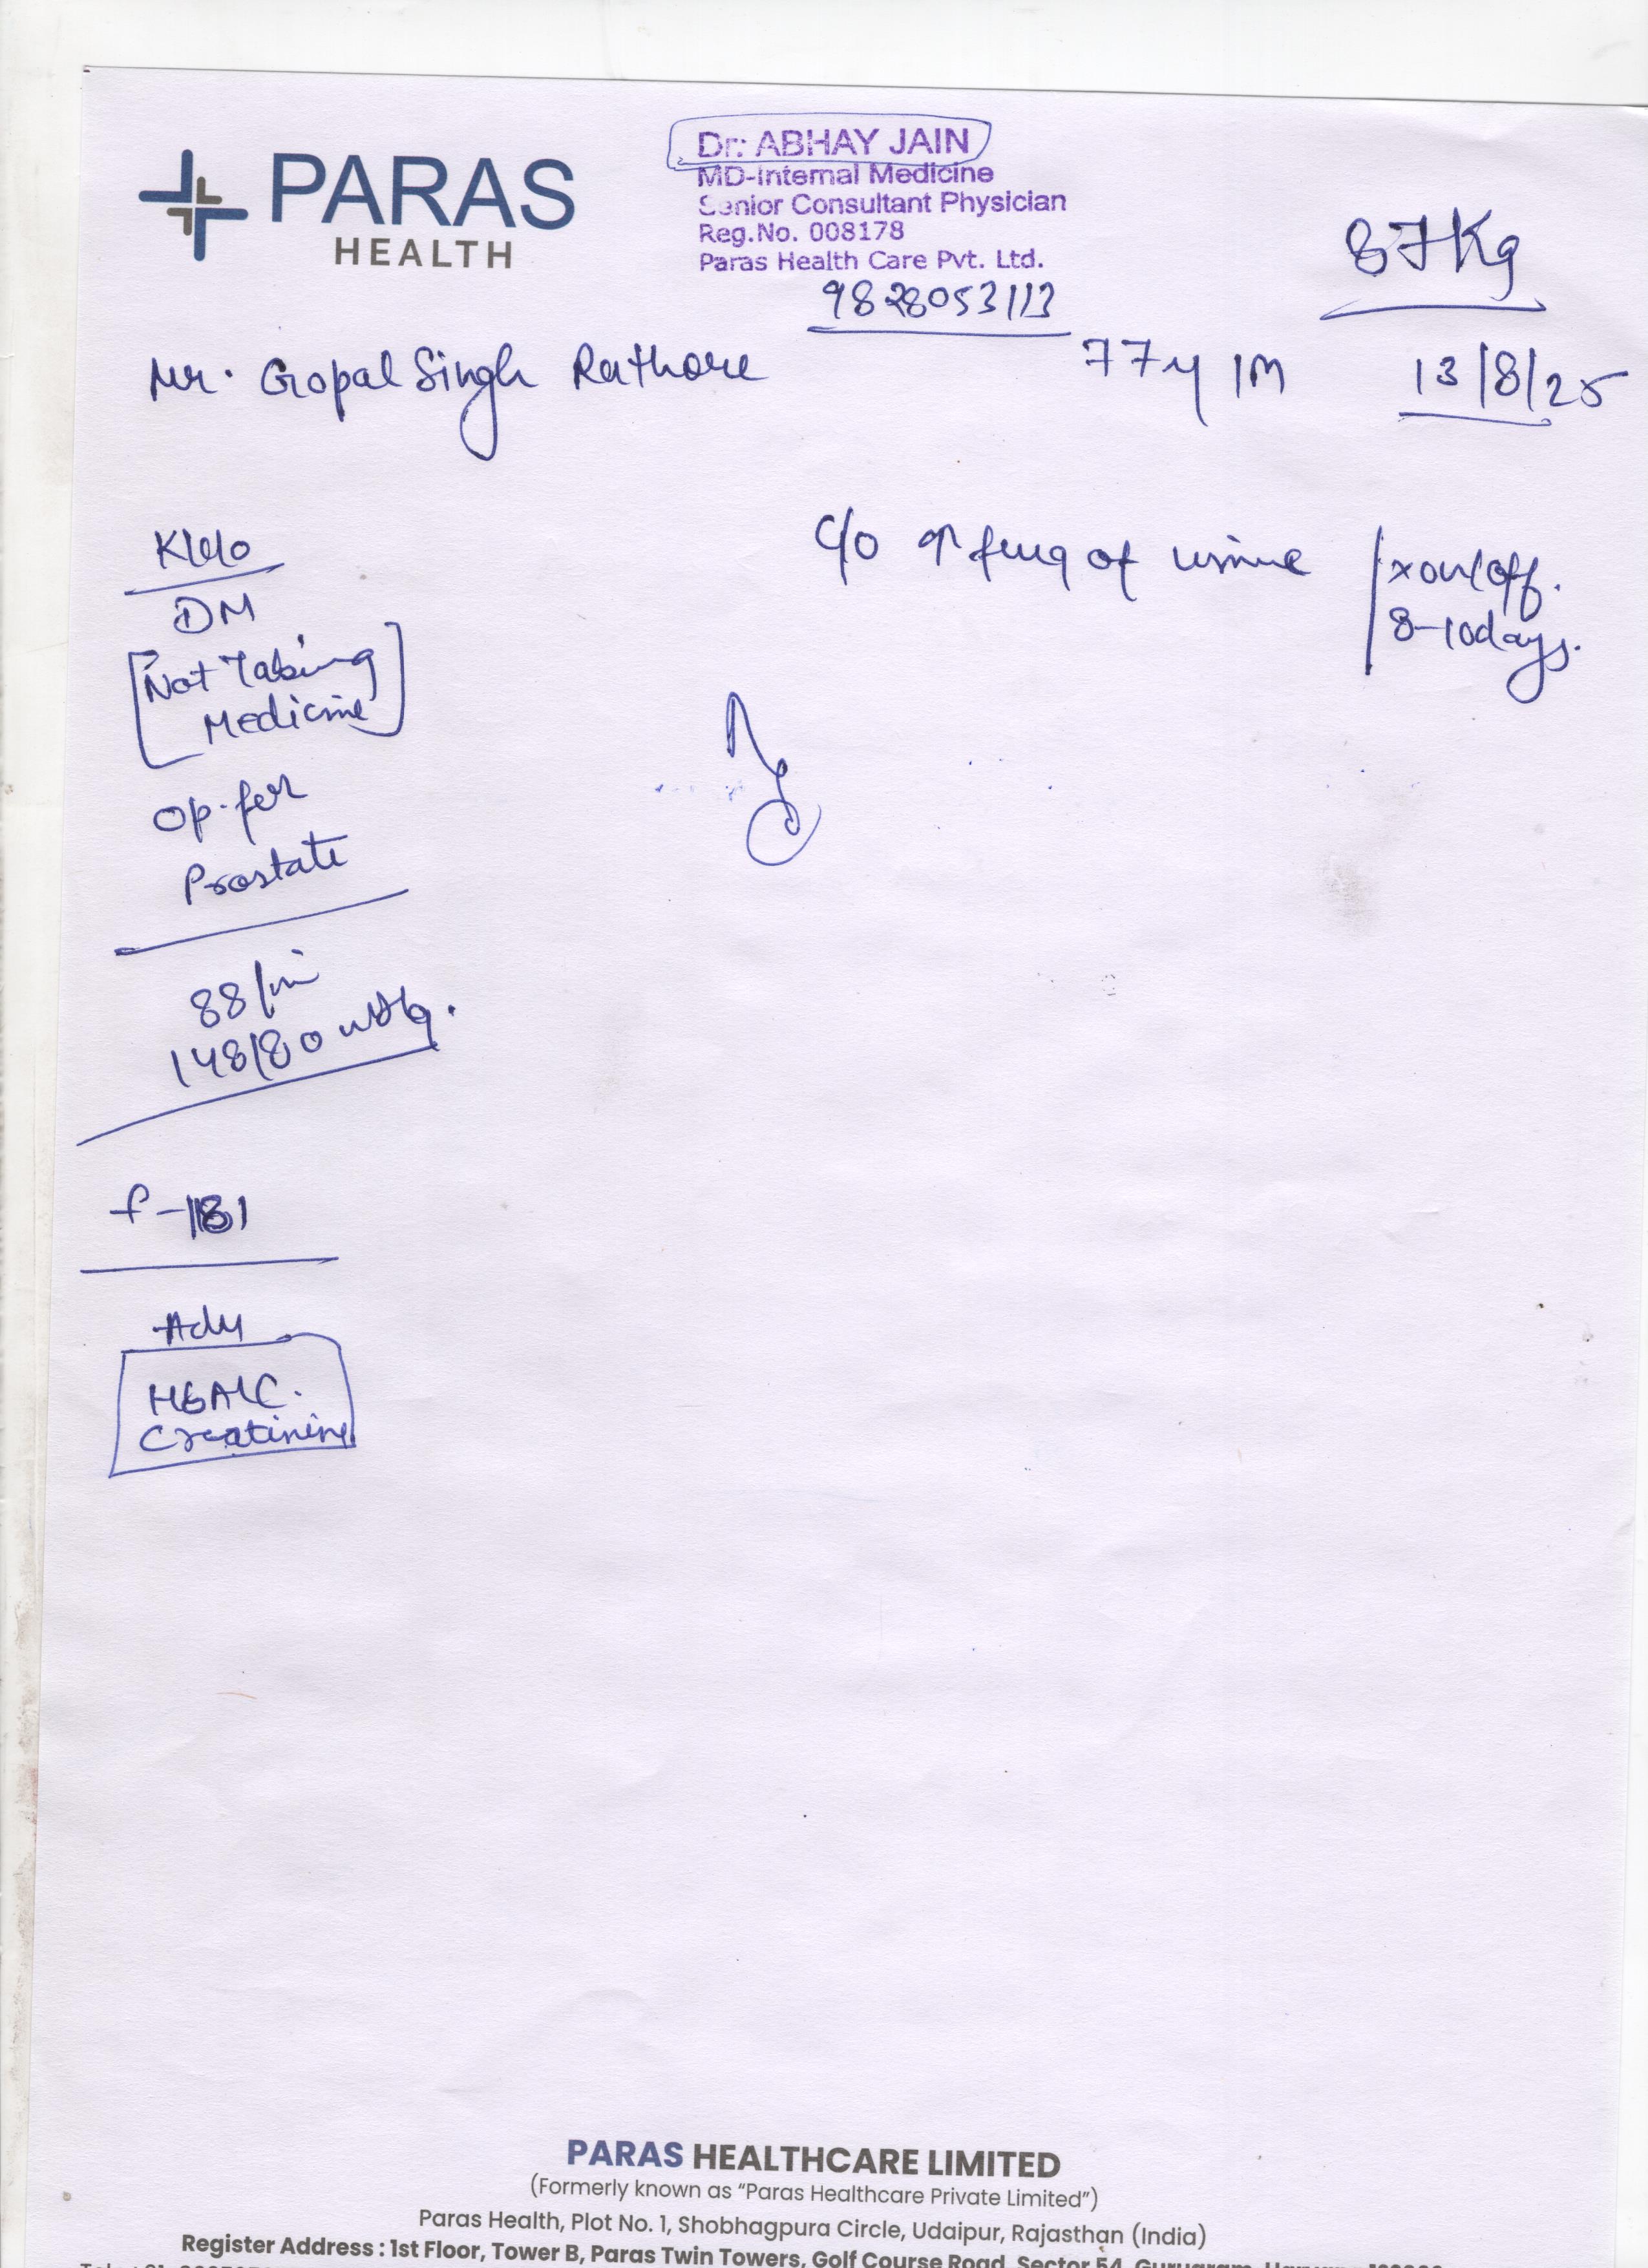 PARAS
HEALTH
Dr. ABHAY JAIN
MD-Internal Medicine
Senior Consultant Physician
Reg.No. 008178
Paras Health Care Pvt. Ltd.
9828053113
87Kg
Mr. Gopal Singh Rathore 77y/M 13/8/25
K/c/o
DM
[Not Taking
Medicine]
Op. for
Prostate
88/mi
148/80
Adv
HbA1C.
Creatinine
c/o ↑ freq of urine x on/off.
8-10days.
PARAS HEALTHCARE LIMITED
(Formerly known as “Paras Healthcare Private Limited”)
Paras Health, Plot No. 1, Shobhagpura Circle, Udaipur, Rajasthan (India)
Register Address : 1st Floor, Tower B, Paras Twin Towers, Golf Course Road, Sector 54,